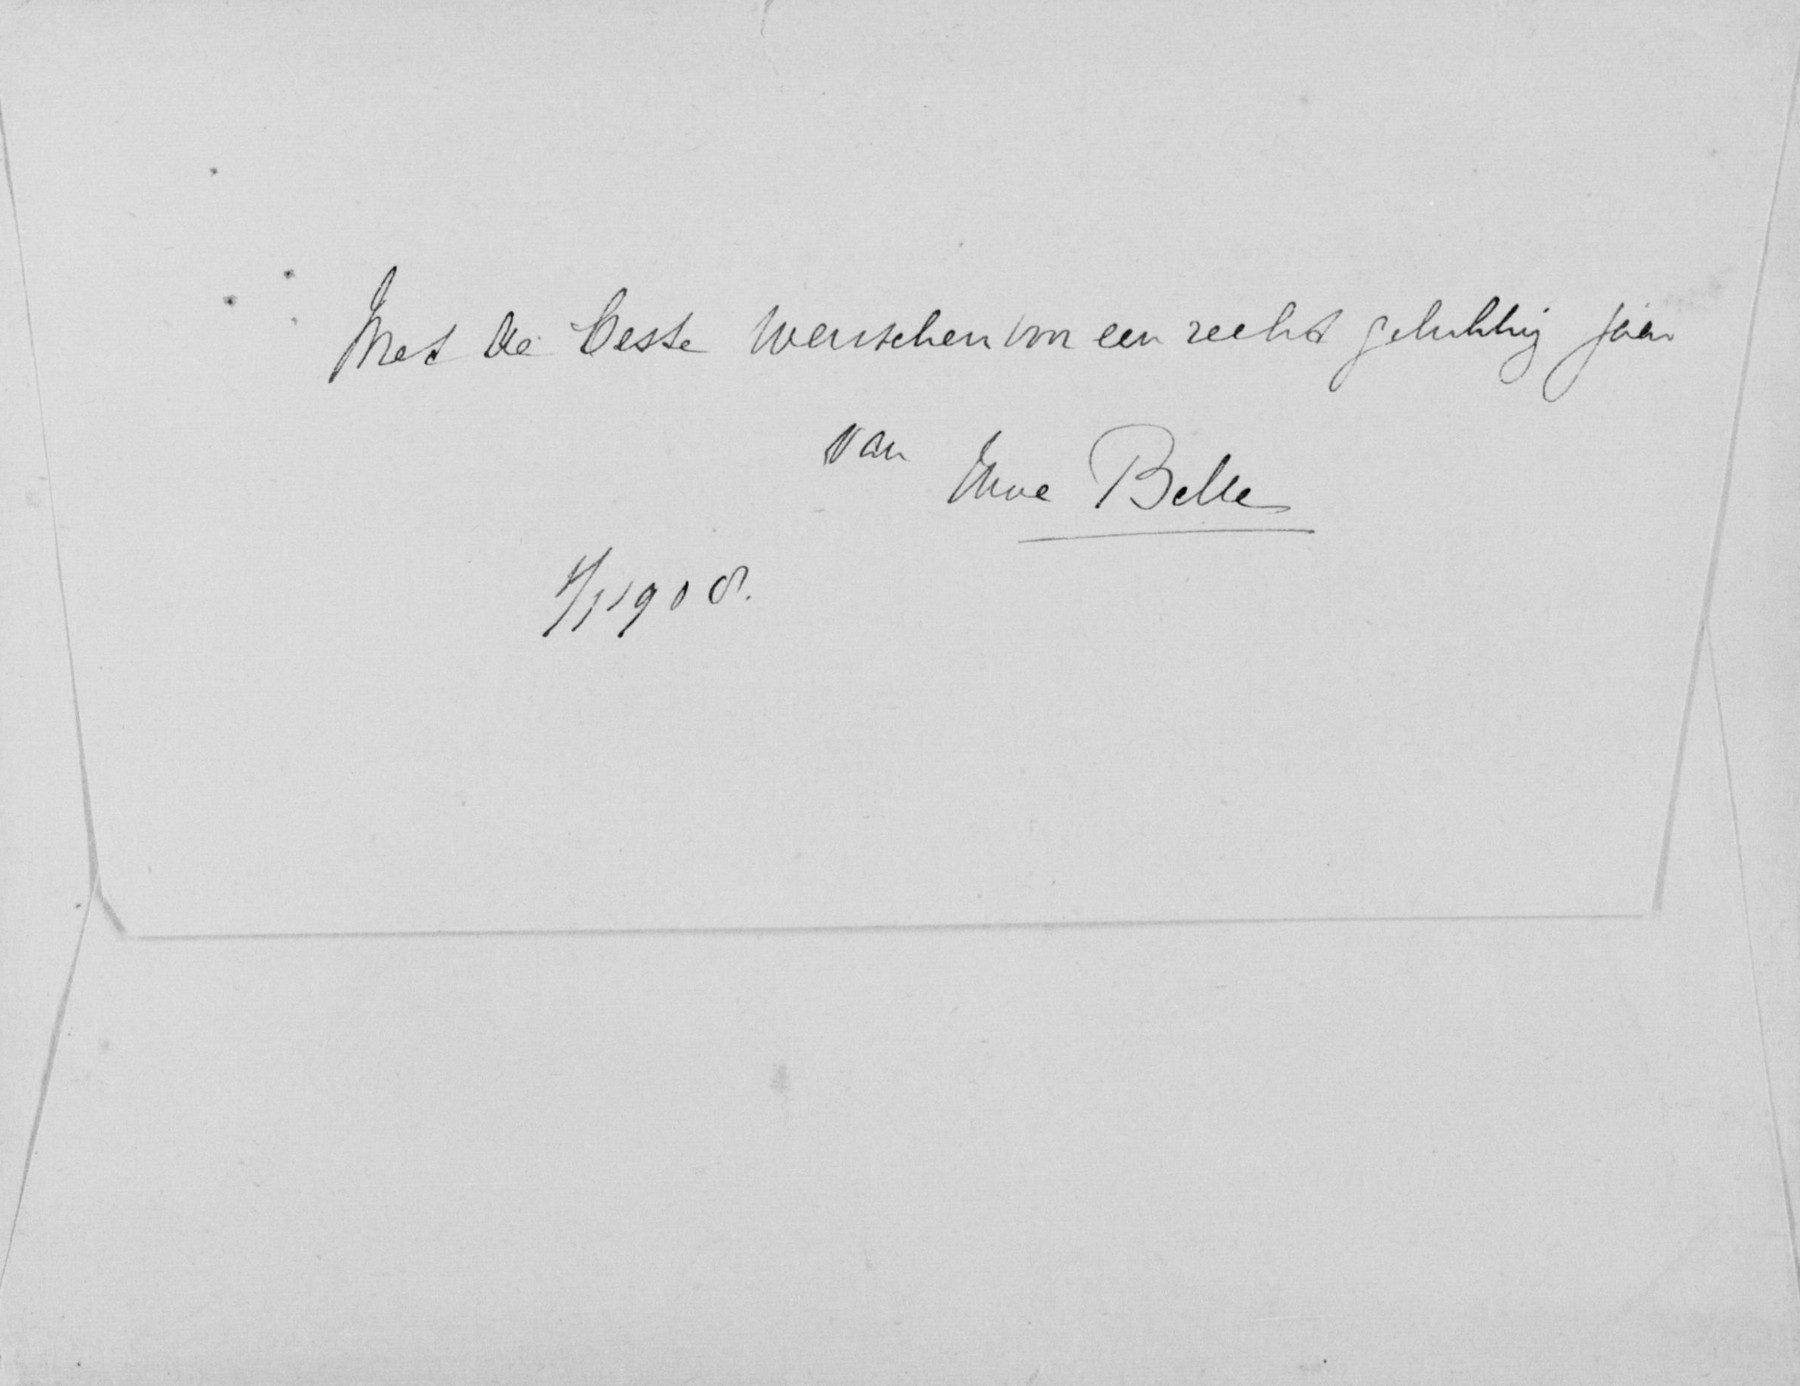 Met de beste wenschen voor een recht gelukkig jaar
van Uwe Belle
1/1 1908.